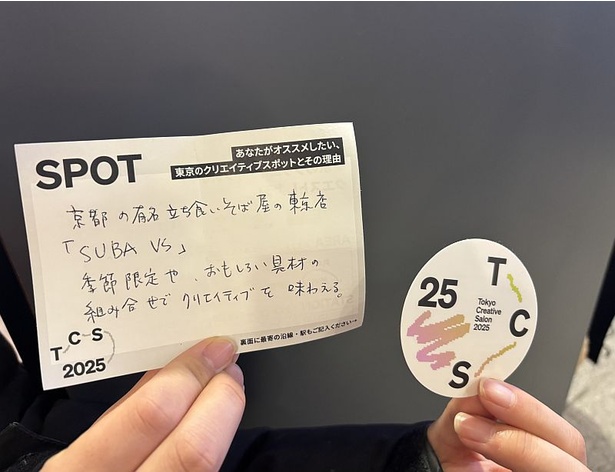 SPOT
あなたがオススメしたい、
東京のクリエイティブスポットとその理由
京都の有名立ち食いそば屋の東京店
「SUBA VS」
季節限定や、おもしろい具材の
組み合せでクリエイティブを味わえる。
TCS
2025
裏面に最寄の沿線・駅もご記入ください→
T
25
Tokyo
Creative
Salon
2025
C
S